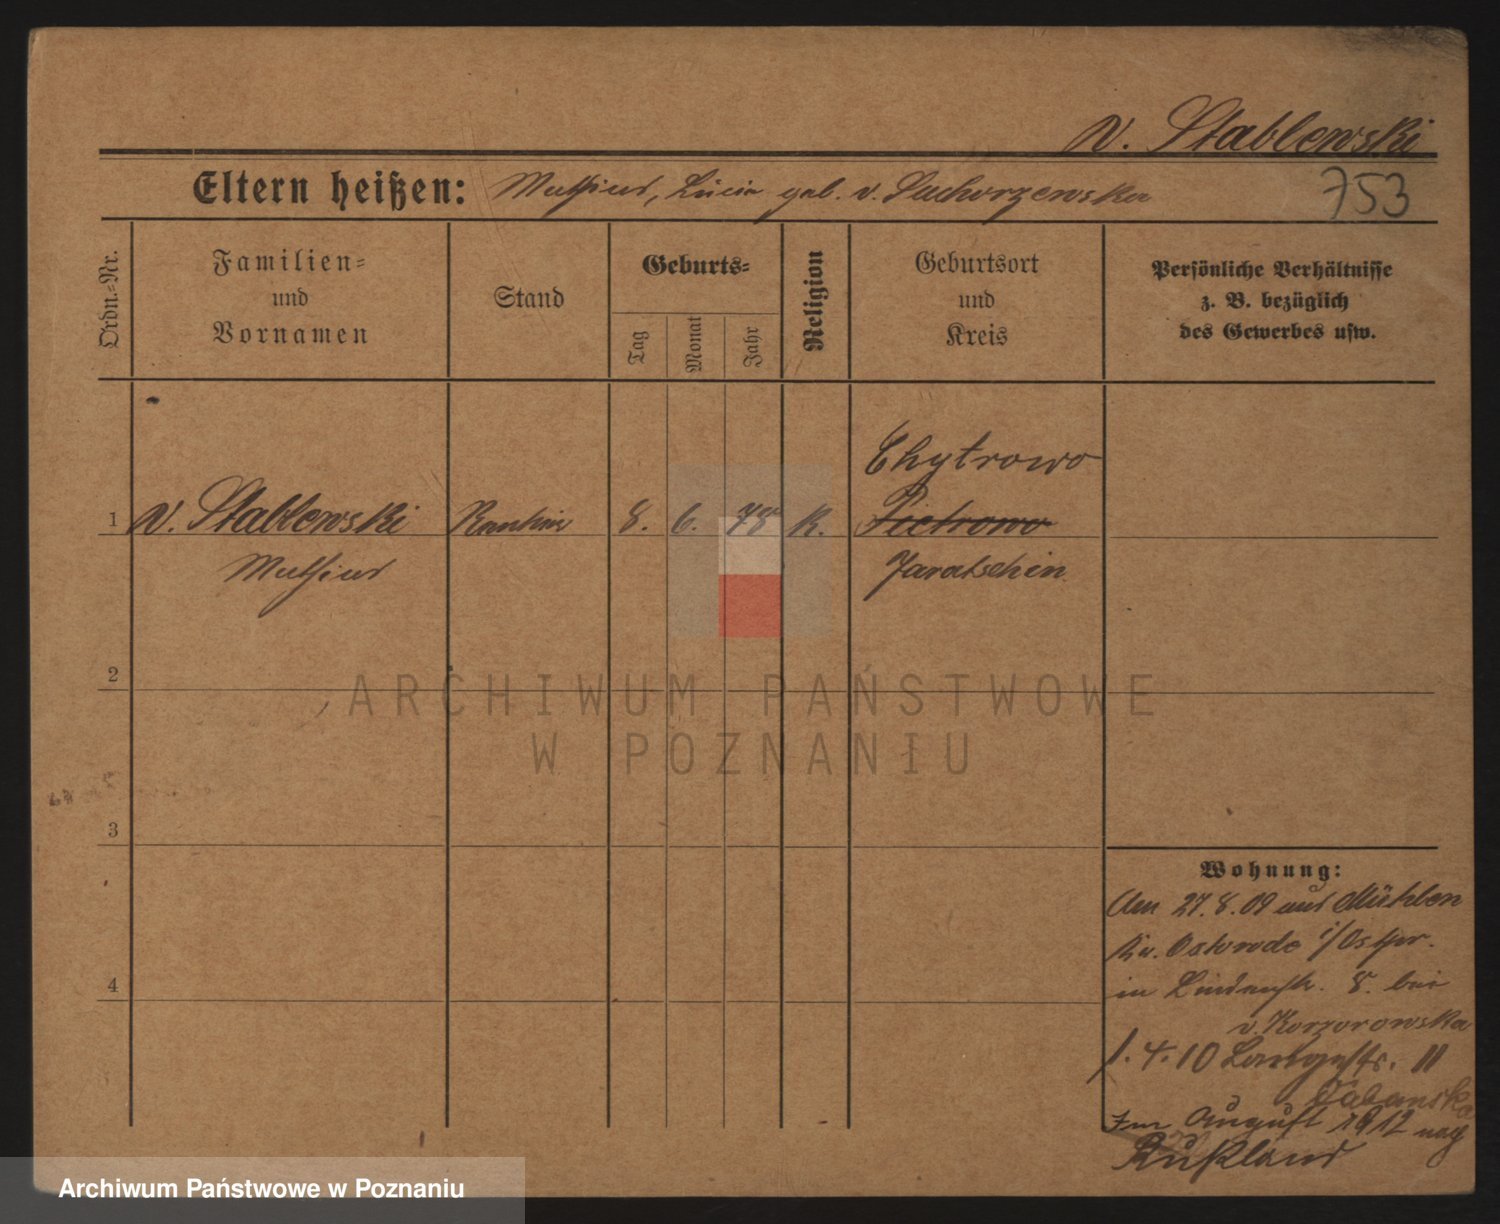 v. Stablewski
Eltern heißen: Mathias, Lucia geb. v. Suchorzewska
753
Ordn.-Nr.
Familien-
und
Vornamen
Stand
Geburts-
Tag
Monat
Jahr
Religion
Geburtsort
und
Kreis
Persönliche Verhältnisse
z. B. bezüglich
des Gewerbes usw.
Chytrowo
1 v. Stablewski Rentier 8. 6. 75 K. Pietrowo
Mathias Jaratschin
2
ARCHIWUM PAŃSTWOWE
W POZNANIU
3
Wohnung:
Am 27.8.09 aus Mühlen
Kr. Osterode i/Ostpr.
4
in Lindenstr. 8. bei
v. Korzorowska
1.4.10 11
Im August 1912 nach
Rußland
Archiwum Państwowe w Poznaniu